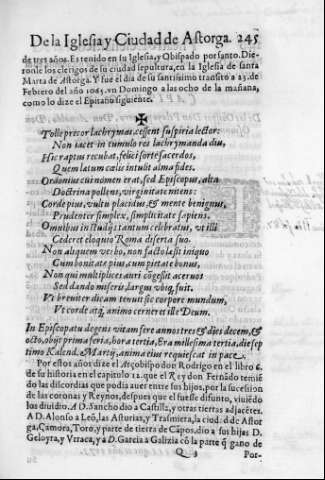 De la Iglesia y Ciudad de Astorga. 245
de tres años. Es tenido en su Iglesia, y Obispado por santo. Die-
ronle los clerigos de su ciudad sepultura, en la Iglesia de santa
Marta de Astorga. Y fue el dia de su santissimo transito a 23. de
Febrero del año 1065. vn Domingo a las ocho de la mañana,
como lo dize el Epitafio siguiente.
✠
Tolle precor lachrymas, cessent suspiria lector:
Non iacet in tumulo res lachrymanda diu,
Hic raptus recubat, felici sorte sacerdos,
Quem latum cælis intulit alma fides.
Ordonius cui nomen erat, sed Episcopus, alta
Doctrina pollens, virginitate nitens:
Corde pius, vultu placidus, & mente benignus,
Prudenter simplex, simplicitate sapiens.
Omnibus in studijs tantum celebratus, vt illi
Cederet eloquio Roma diserta suo.
Non aliquem verbo, non facto læsit iniquo
Cum bonitate pius, cum pietate bonus,
Non qui multiplices auri cõgessit aceruos
Sed dando miseris, largus vbiq, fuit.
Vt breuiter dicam tenuit sic corpore mundum,
Vt corde atq, animo cerneret ille Deum.
In Episcopatu degens vitam fere annos tres & dies decem, &
octo, obijt prima feria, hora tertia, Era millesima tertia, die sep
timo Kalend. Martij, anima eius requiescat in pace.
Por estos años dize el Arçobispo don Rodrigo en el libro 6.
de su historia en el capitulo 12. que el Rey don Fernãdo temiẽ
do las discordias que podia auer entre sus hijos, por la sucesion
de las coronas y Reynos, despues que el fuesse difunto, viuiẽdo
los diuidio. A D. Sancho dio a Castilla, y otras tierras adjacẽtes.
A D. Alonso a Leõ, las Asturias, y Trasmiera, la ciudad de Astor
ga, Çamora, Toro, y parte de tierra de Cãpos, dio a sus hijas D.
Geloyra, y Vrraca, y a D. Garcia a Galizia cõ la parte q̃ gano de
Q 3 Por-